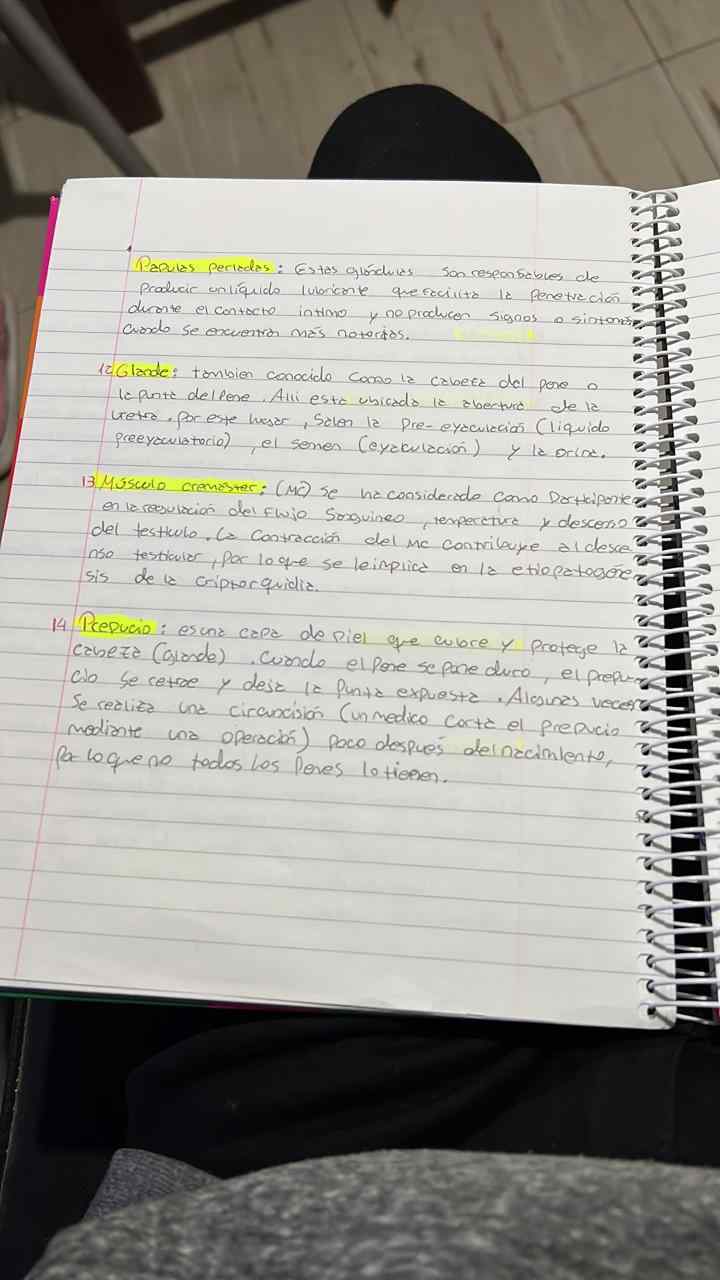 Papulas perladas: Estas glándulas son responsables de
producir un líquido lubricante que facilita la penetración
durante el contacto intimo y no producen signos o sintomas
cuando se encuentran más notorias.
12 Glande: tambien conocido como la cabeza del pene o
la punta del pene. Alli esta ubicada la abertura de la
uretra, por este lugar, salen la pre-eyaculación (liquido
preeyaculatorio), el semen (eyaculación) y la orina.
13 Músculo cremáster: (MC) se ha considerado como participante
en la regulación del flujo sanguineo, temperatura y descenso
del testiculo. La contracción del MC contribuye al desce
nso testicular, por lo que se le implica en la etiopatogéne
sis de la criptorquidia.
14 Prepucio: es una capa de piel que cubre y protege la
cabeza (glande). Cuando el pene se pone duro, el prepu
cio se retrae y deja la punta expuesta. Algunas veces
se realiza una circuncisión (un medico corta el prepucio
mediante una operación) poco después del nacimiento,
por lo que no todos los penes lo tienen.